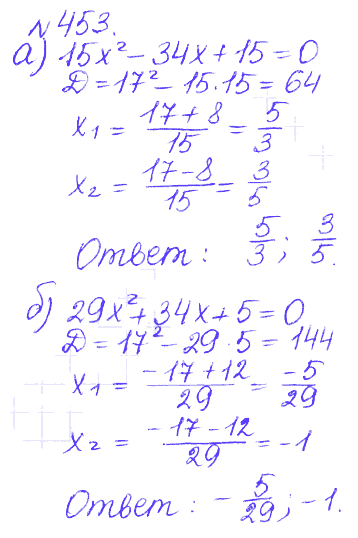 №453.
а) 15x² - 34x + 15 = 0
D = 17² - 15·15 = 64
x₁ = (17 + 8)/15 = 5/3
x₂ = (17 - 8)/15 = 3/5
Ответ: 5/3; 3/5.
б) 29x² + 34x + 5 = 0
D = 17² - 29·5 = 144
x₁ = (-17 + 12)/29 = -5/29
x₂ = (-17 - 12)/29 = -1
Ответ: -5/29; -1.